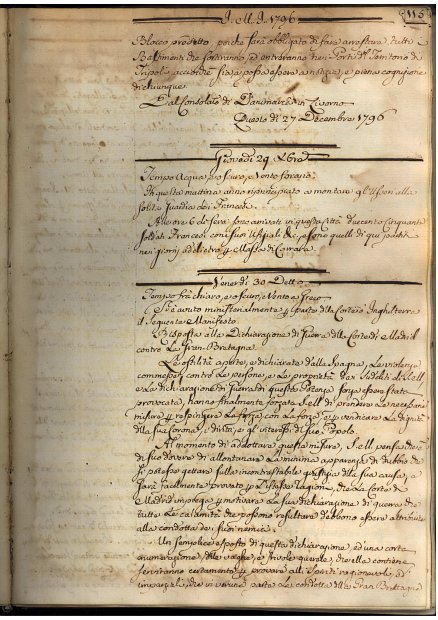 I.M.I. 1796
115
Blocco predetto, poiche sarà obbligato di fare arrestare tutti i
Bastimenti che sortiranno, o entreranno nei Porti di Territorio di
Tripoli accioche si possa essere a notizia, e piena cognizione
di chiunque.
Dal Consolato di Danimarca in Livorno
Questo dì 27 Decembre 1796
Giovedì 29 Xbre
Tempo Acqua, o scuro, e Vento
Di questa mattina anno riprincipiato a montare gl'Ussari alla
solita Guardia dei Francesi.
Alle ore 6 di sera sono arrivati in questa Città duecento cinquanta
soldati Francesi con i suoi Ufiziali che sono quelli di qui partiti
nei giorni addietro p Massa di Carrara.
Venerdì 30 Detto
Tempo frà chiaro, e scuro, e Vento a Greco
Si è avuto ministerialmente p parte dlla Corte d'Inghilterra
il Seguente Manifesto.
Risposta alla Dichiarazione di Guerra dlla Corte di Madrid
contro la Gran-Bretagna.
Le ostilità aperte, e dichiarate dalla Spagna, le violenze
commesse contro le persone, e le proprietà dei Sudditi di S.M.
e la dichiarazione di Guerra di questa Potenza senza essere stata
provocata, hanno finalmente forzata S.M. di prendere le necessarie
misure p respingere la forza con la forza, e p vendicare la dignità
dlla sua Corona, i diritti, e gl'interessi di suo Popolo.
Al momento di addottare queste misure, S.M. pensa ch'era
di suo dovere di allontanare la minima apparenza di dubbio che
si potesse gettare sulla incontrastabile giustizia dlla sua causa, e
sarà facilmente provato p l'istesse ragioni, che la Corte di
Madrid impiega p motivare la sua dichiarazione di guerra che
tutte le calamità che possono resultare debbono essere attribuite
alla condotta dei suoi nemici.
Un semplice esposto di questa dichiarazione, ed una corta
enumerazione dlle vaghe, e frivole querele, che ella contiene
serviranno certamente p provare alli Spiriti ragionevoli, ed
imparziali, che in veruna parte la condotta dlla Gran Brettagna